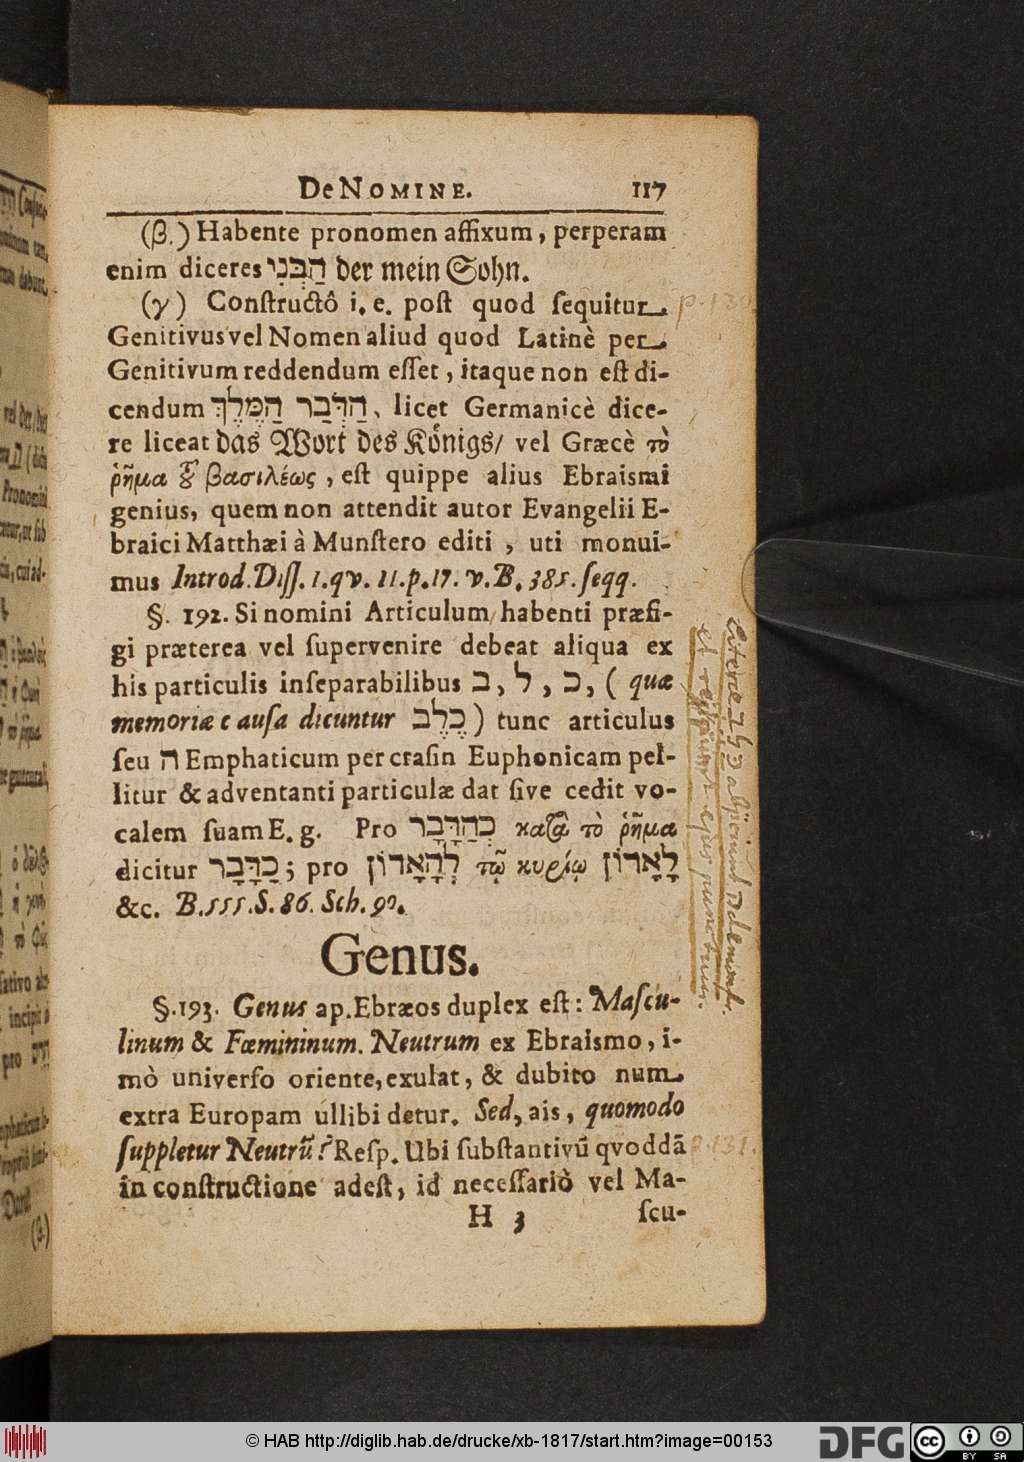 De NOMINE. 117
(β.) Habente pronomen affixum, perperam
enim diceres הַבְּנִי der mein Sohn.
(γ) Constructô i. e. post quod sequitur p. 130
Genitivus vel Nomen aliud quod Latinè per
Genitivum reddendum esset, itaque non est di-
cendum הַדְּבַר הַמֶּלֶךְ, licet Germanicè dice-
re liceat das Wort des Königs/ vel Græcè τὸ
ῥῆμα ȣ͂ βασιλέως, est quippe alius Ebraismi
genius, quem non attendit autor Evangelii E-
braici Matthæi à Munstero editi, uti monui-
mus Introd. Diss. 1. qv. 11. p. 17. v. B. 385. seqq.
§. 192. Si nomini Articulum habenti præfi-
gi præterea vel supervenire debeat aliqua ex
his particulis inseparabilibus ב, ל, כ, ( quæ
memoriæ causa dicuntur כֶלֶב) tunc articulus
seu ה Emphaticum per crasin Euphonicam pel-
litur & adventanti particulæ dat sive cedit vo-
calem suam E. g. Pro כְּהַדָּבָר κατὰ τὸ ῥῆμα
dicitur כַּדָּבָר; pro לְהָאָדוֹן τῷ κυρίῳ לָאָדוֹן
&c. B. 555. S. 86. Sch. 90.
Genus.
§. 193. Genus ap. Ebræos duplex est: Mascu-
linum & Fœmininum. Neutrum ex Ebraismo, i-
mò universo oriente, exulat, & dubito num
extra Europam ullibi detur. Sed, ais, quomodo
suppletur Neutrũ? Resp. Ubi substantivũ qvoddã p. 131.
in constructione adest, id necessariò vel Ma-
H 3 scu-
© HAB http://diglib.hab.de/drucke/xb-1817/start.htm?image=00153
DFG
cc BY SA